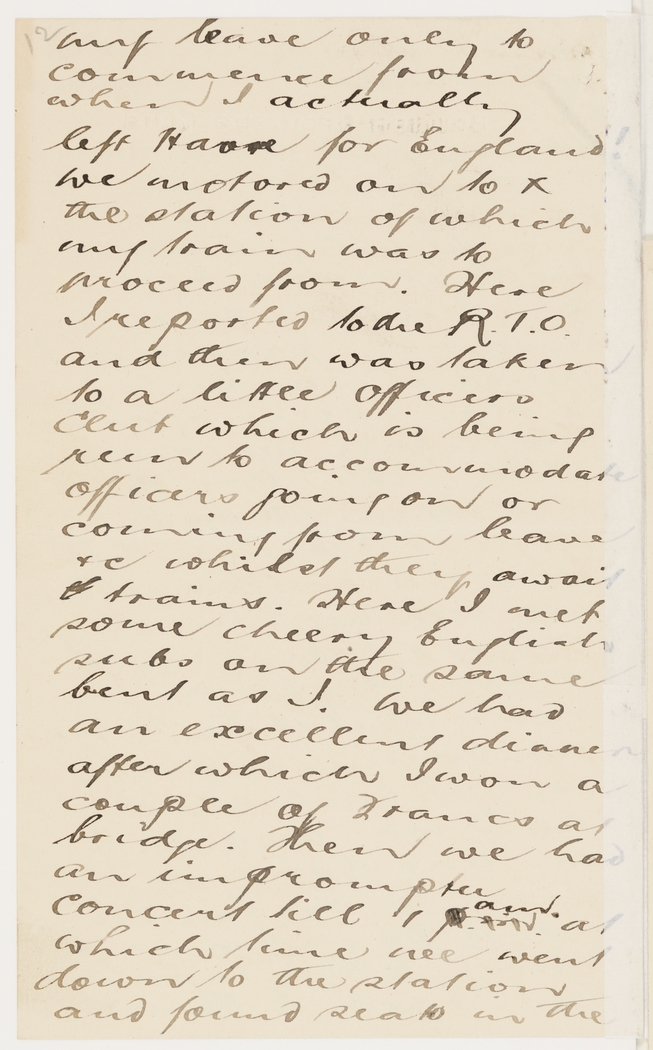 12
my leave only to
commence from
when I actually
left Havre for England
we motored on to X
the station of which
my train was to
proceed from. Here
I reported to the R.T.O.
and then was taken
to a little Officers
Club which is being
run to accommodate
officers going on or
coming from leave
&c whilst they await
trains. Here I met
some cheery English
subs on the same
bent as I. We had
an excellent dinner
after which I won a
couple of Francs at
bridge. Then we had
an impromptu
concert till 1 am. at
which time wee went
down to the station
and found seats in the